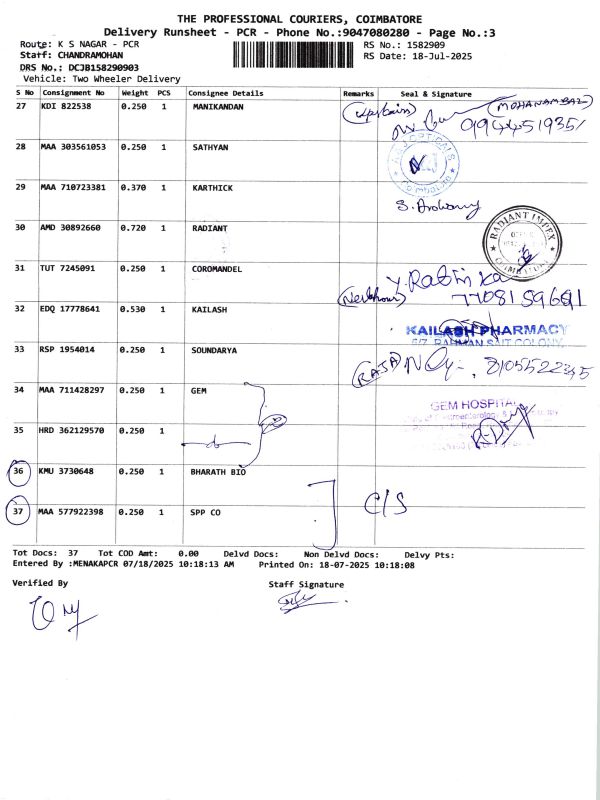 THE PROFESSIONAL COURIERS, COIMBATORE
Delivery Runsheet - PCR - Phone No.:9047080280 - Page No.:3
Route: K S NAGAR - PCR
RS No.: 1582909
Staff: CHANDRAMOHAN
RS Date: 18-Jul-2025
DRS No.: DCJB158290903
Vehicle: Two Wheeler Delivery
S No Consignment No Weight PCS Consignee Details Remarks Seal & Signature
27 KDI 822538 0.250 1 MANIKANDAN
(MOHANAMBAL)
28 MAA 303561053 0.250 1 SATHYAN
29 MAA 710723381 0.370 1 KARTHICK
30 AMD 30892660 0.720 1 RADIANT
RADIANT IMPEX
31 TUT 7245091 0.250 1 COROMANDEL
(Neibhour) 7708159681
32 EDQ 17778641 0.530 1 KAILASH
KAILASH PHARMACY
33 RSP 1954014 0.250 1 SOUNDARYA
(RAJA) 8105522345
34 MAA 711428297 0.250 1 GEM
GEM HOSPITAL
35 HRD 362129570 0.250 1
36 KMU 3730648 0.250 1 BHARATH BIO
37 MAA 577922398 0.250 1 SPP CO
C/S
Tot Docs: 37 Tot COD Amt: 0.00 Delvd Docs: Non Delvd Docs: Delvy Pts:
Entered By :MENAKAPCR 07/18/2025 10:18:13 AM Printed On: 18-07-2025 10:18:08
Verified By Staff Signature